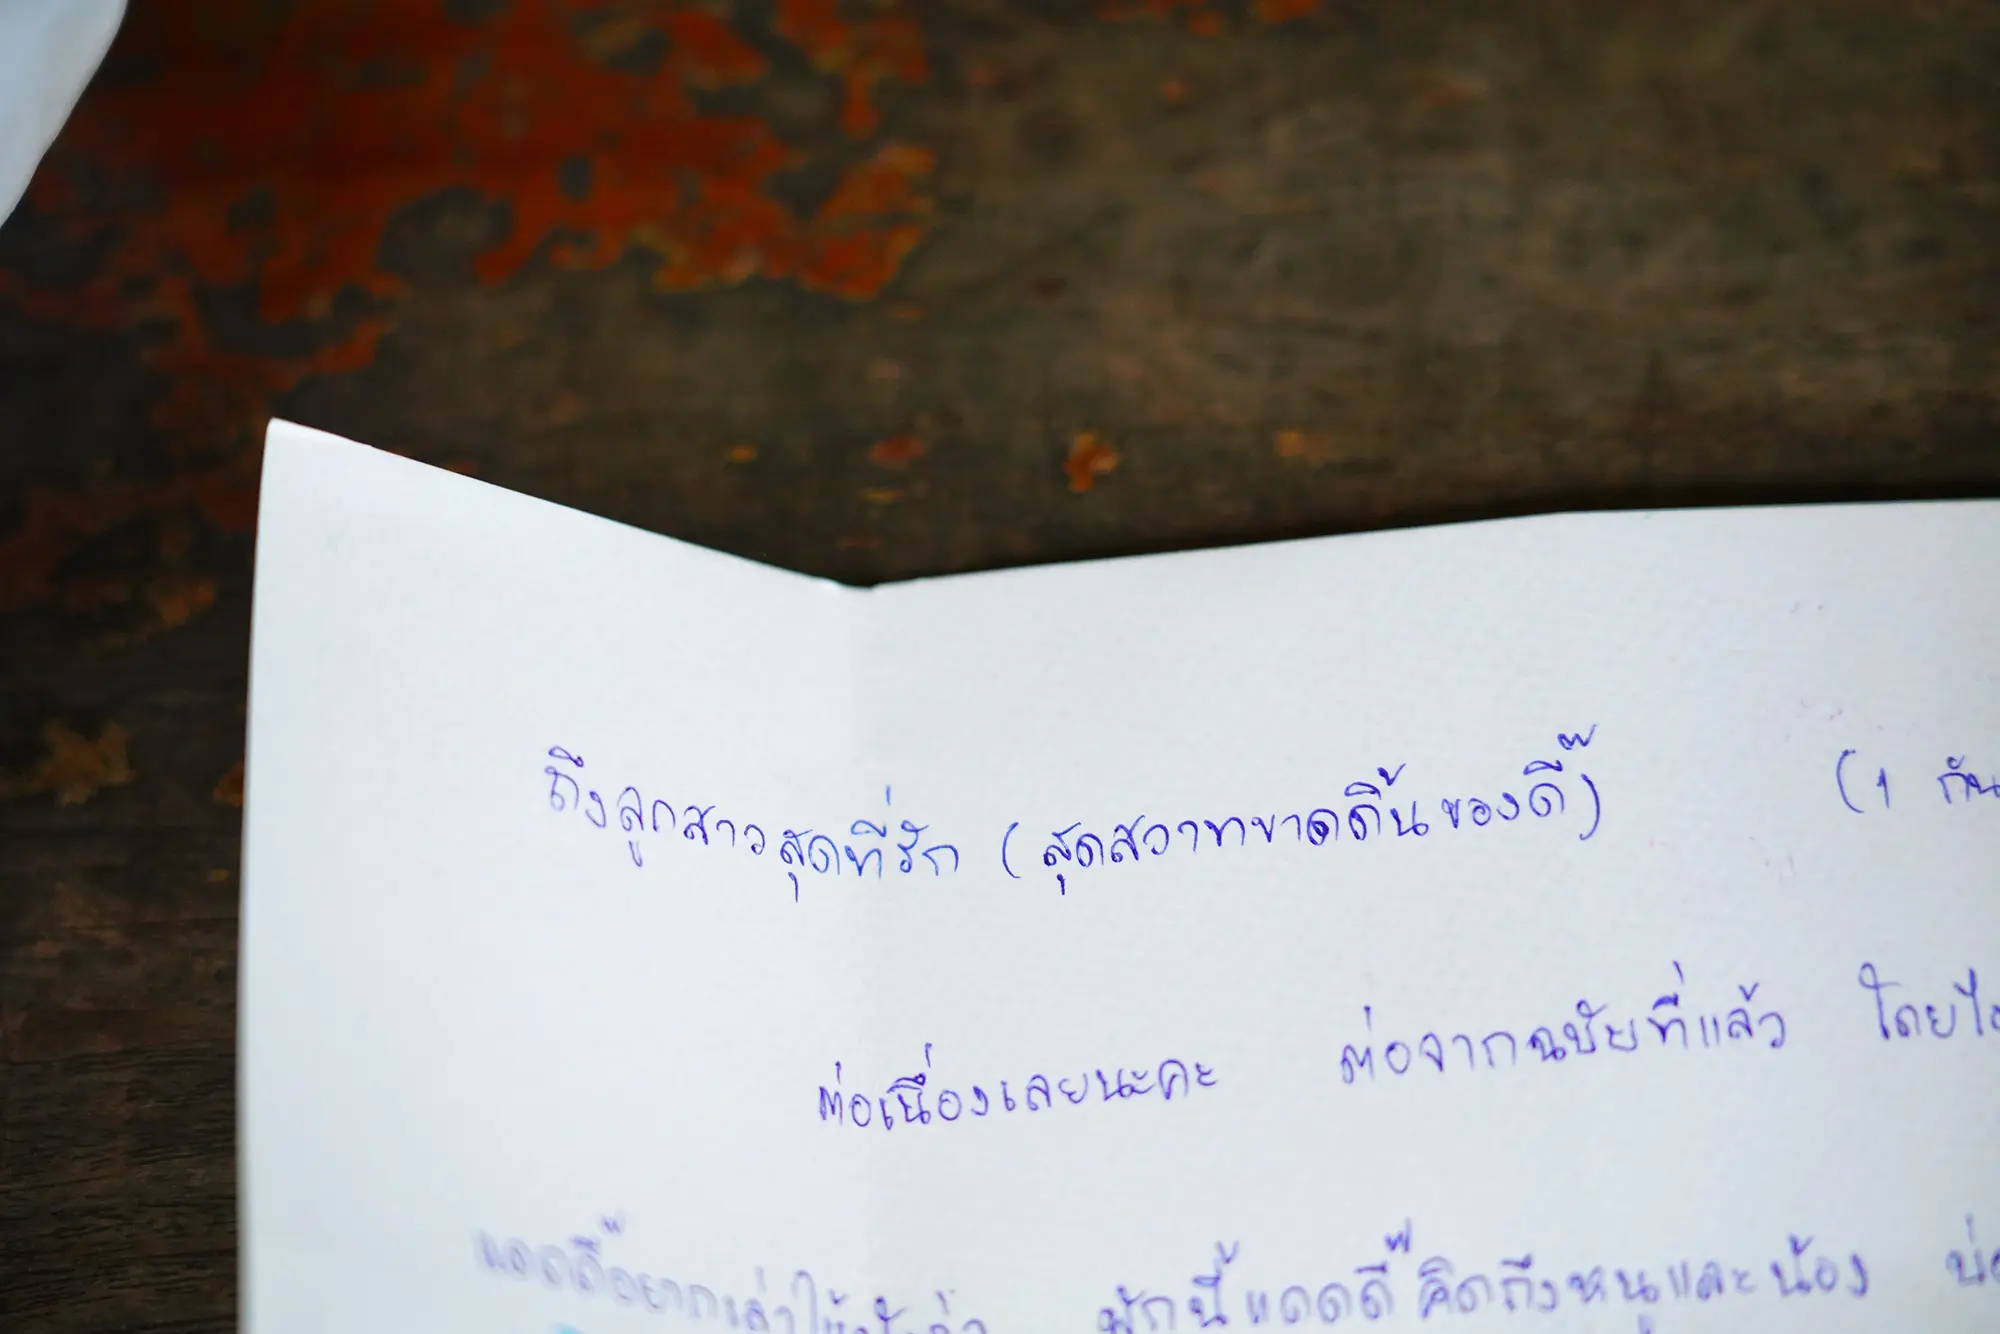 ถึงลูกสาวสุดที่รัก (สุดสวาทขาดดิ้นของดี๊) (1 กัน
ต่อเนื่องเลยนะคะ ต่อจากฉบับที่แล้ว โดย
แดดดี๊อยากเล่าให้ฟังว่า พักนี้แดดดี๊คิดถึงหนูและน้อง